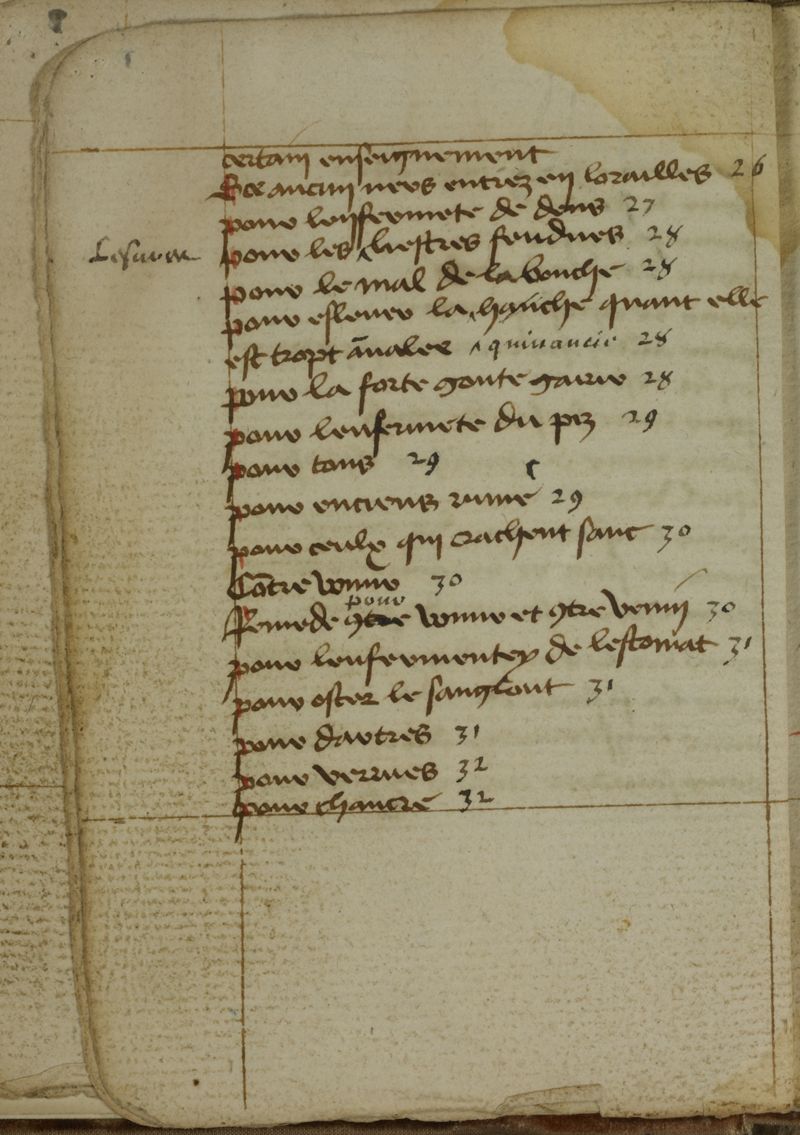 certain enseignement
Se aucun vers entrez en lorailles 26
pour lenfermete de dens 27
pour les lieffres fendues 28
pour le mal de la bouche 28
pour eslever la hanche quant elle
est tropt avalee ‸ quinancie 28
pour la forte goute 28
pour lenfermete du piz 29
pour tous 29
pour enciens rume 29
pour ceulx qui crachent sanc 30
Cōtre vomir 30
pour
Remede 9tre vomir et 9tre venin 30
pour lenfermentey de lestomat 31
pour oster le sanglout 31
pour dartres 31
pour verrues 32
pour chancre 32